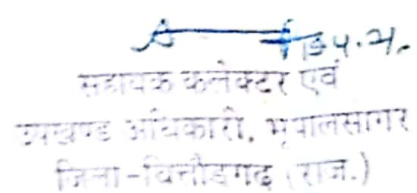 सहायक कलेक्टर एवं
उपखण्ड अधिकारी, भूपालसागर
जिला-चित्तौडगढ़ (राज.)